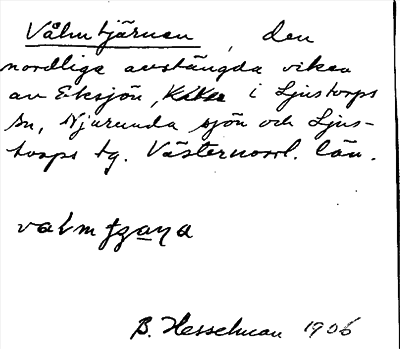 Vålmtjärnen, den
nordliga avstängda viken
av Eksjön, i Ljustorps
sn, Njurunda sjön och Ljus-
torps tg. Västernorrl. län.
B. Hesselman 1906